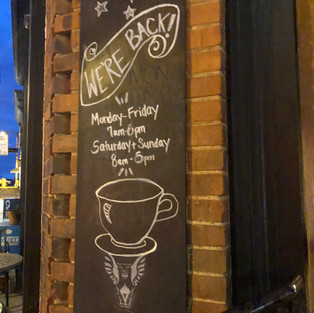 WE'RE BACK!
Monday-Friday
7am-6pm
Saturday + Sunday
8am-6pm